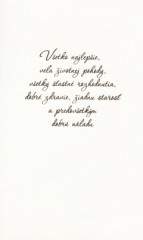 Všetko najlepšie,
veľa životnej pohody,
všetky šťastné rozhodnutia,
dobré zdravie, žiadnu starosť
a predovšetkým
dobrú náladu